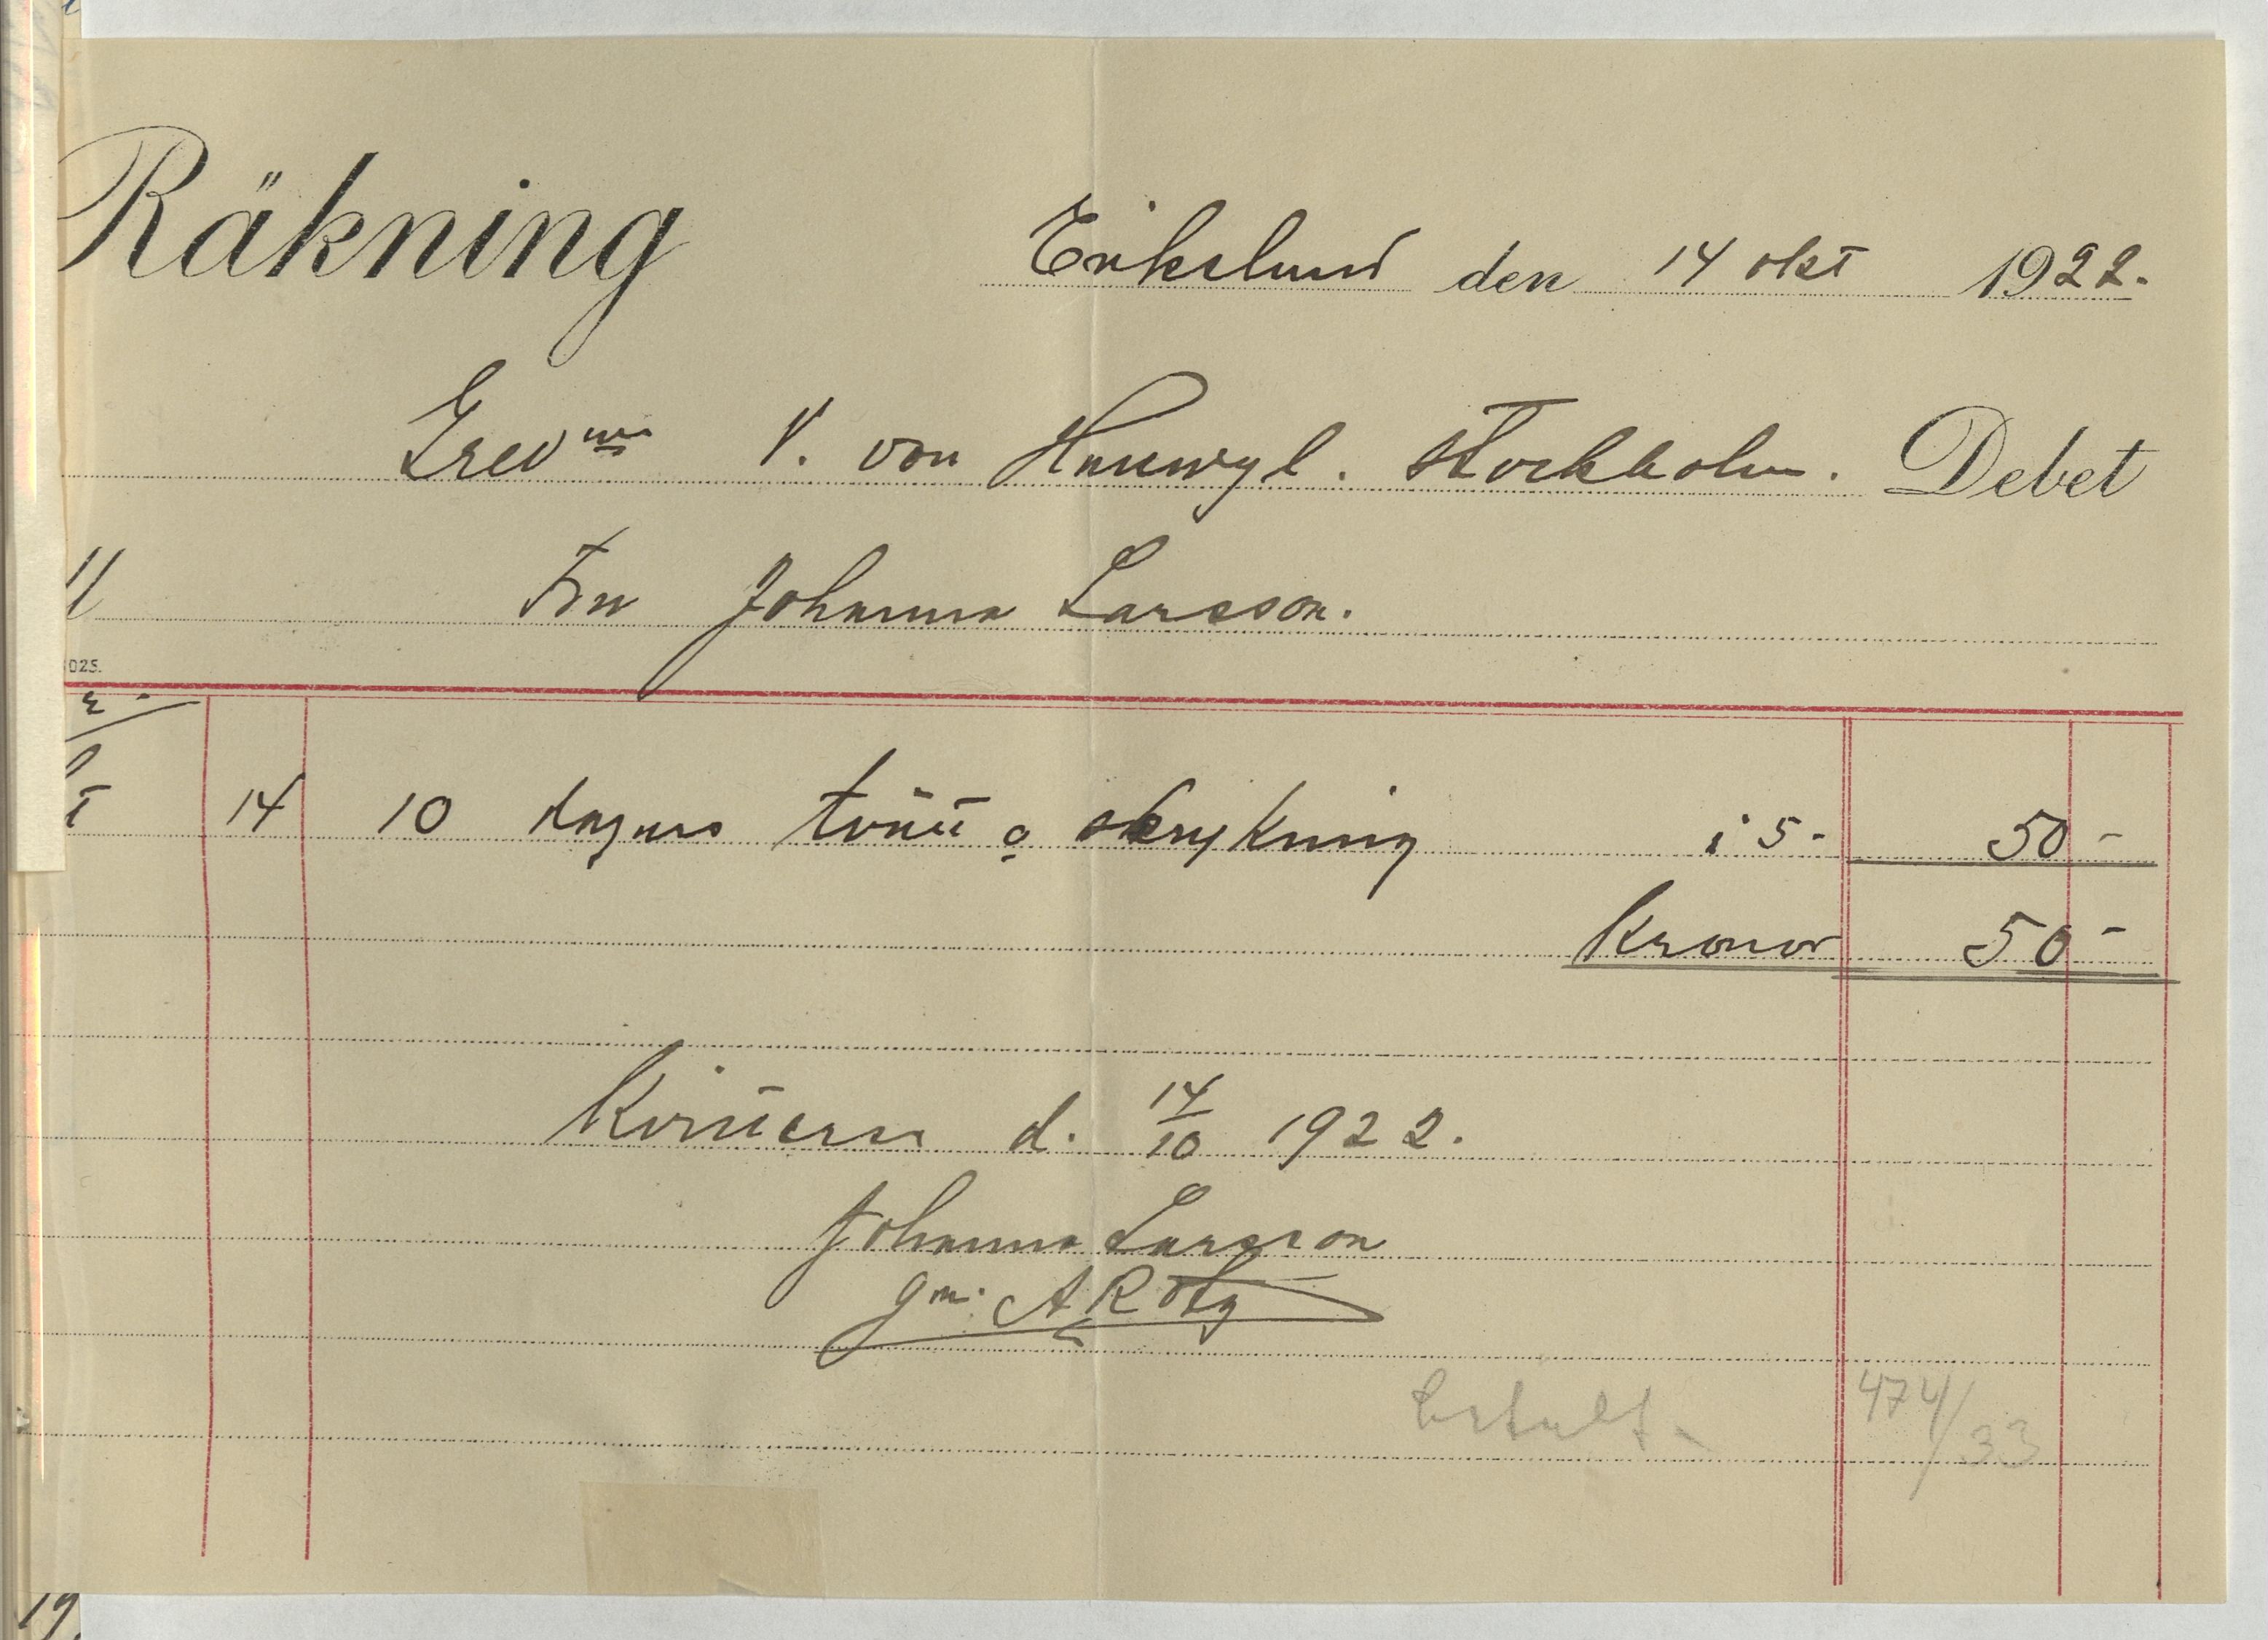 Räkning
Erikslund den 14 okt 1922.
Grev^m V. von Hallwyl. Stockholm. Debet
ll Fru Johanna Larsson.
025.
t 14 10 dagars tvätt o strykning i 5- 50 -
Kronor 50 -
Kvitteras d. 14/10 1922.
Johanna Larsson
gm. A Roty
betalt - 474/33
19